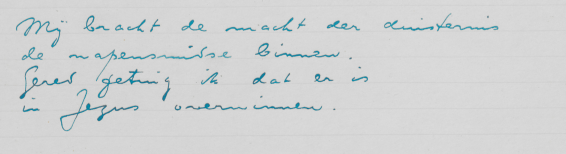 Mij bracht de macht der duisternis
de wapensmidse binnen.
Gered getuig ik dat er is
in Jezus overwinnen.